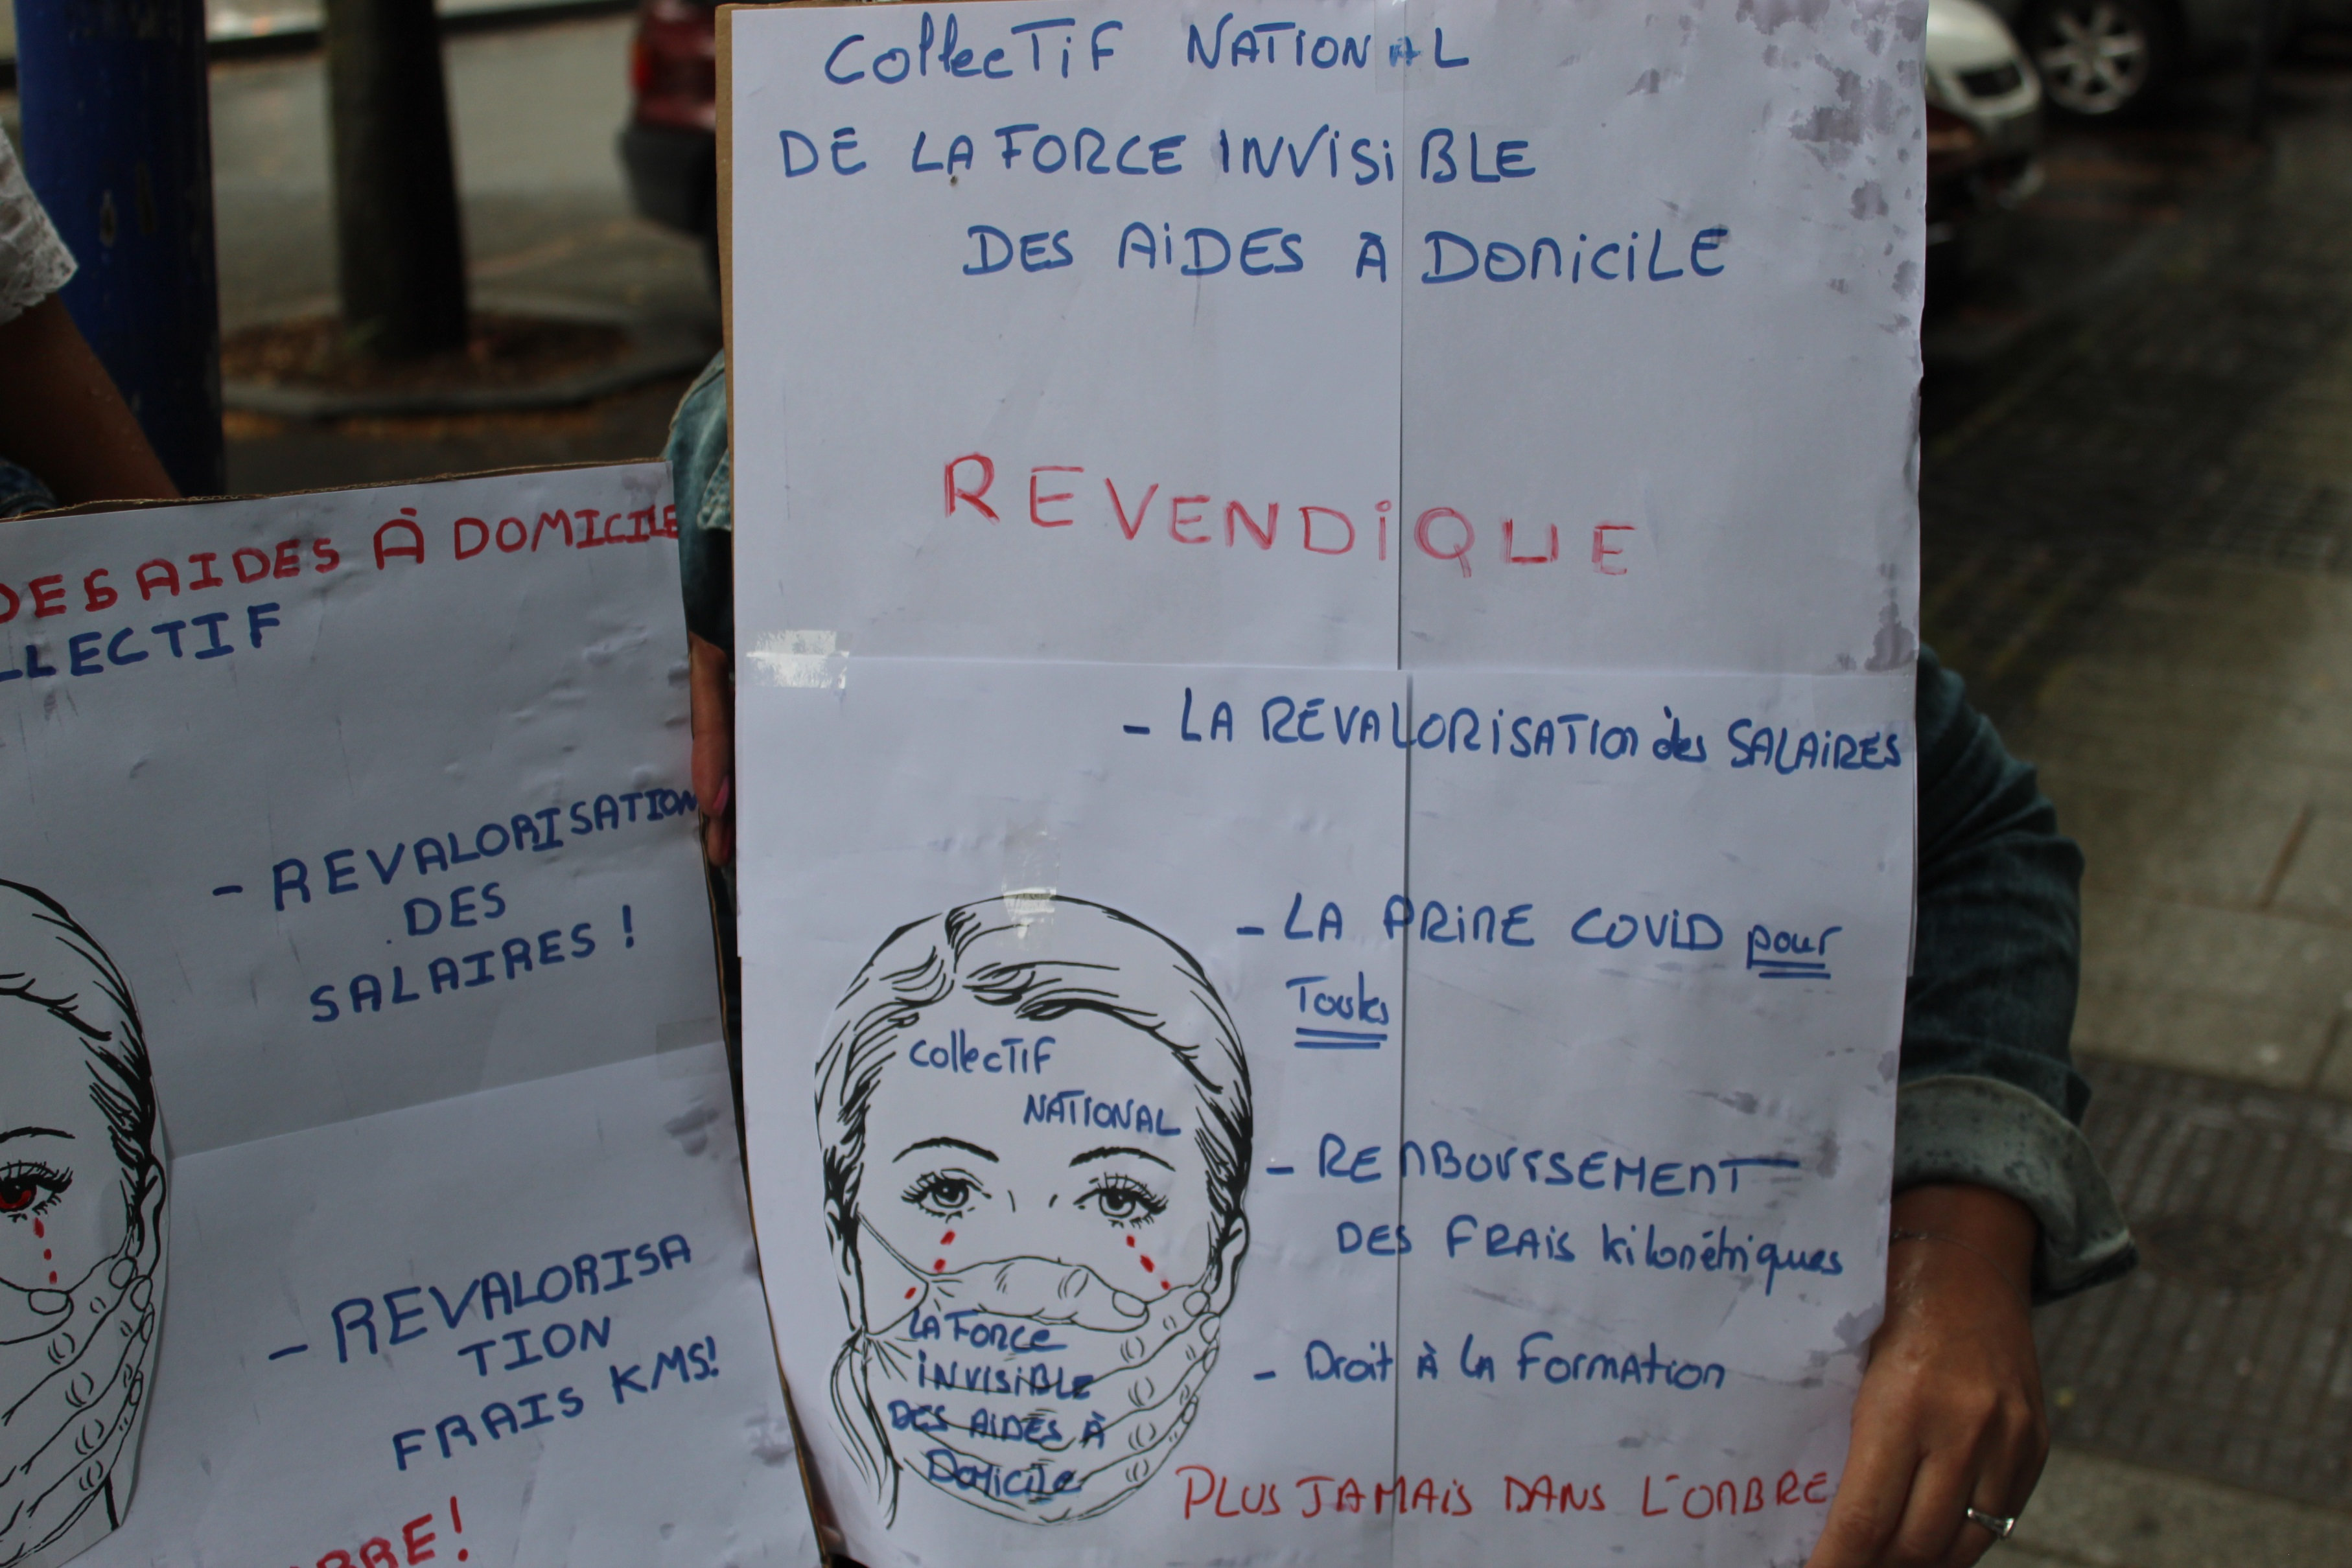 CollecTiF NATIONAL
DE LA FORCE INVISIBLE
DES AIDES A DOMICILE
REVENDIQUE
- LA REVALORISATION des SALAIRES
- LA PRIME COVID pour
Toutes
- REMBOURSEMENT
DES FRAIS kilométriques
- Droit À LA Formation
PLUS JAMAIS DANS L'OMBRE
CollecTIF
NATIONAL
LA FORCE
INVISIBLE
DES AIDES À
DOMICILE
DES AIDES À DOMICILE
LLECTIF
- REVALORISATION
DES
SALAIRES !
- REVALORISA
TION
FRAIS KMS!
BRE!